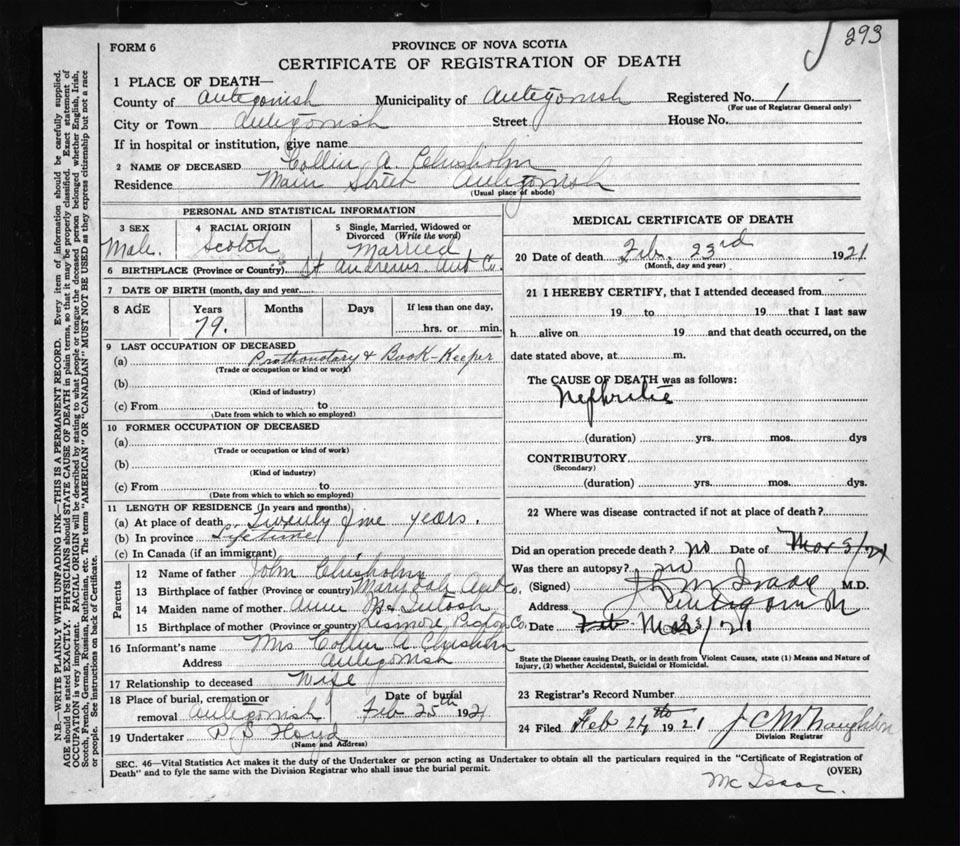 293
FORM 6
PROVINCE OF NOVA SCOTIA
CERTIFICATE OF REGISTRATION OF DEATH
1 PLACE OF DEATH—
County of Antigonish Municipality of Antigonish Registered No. 1
(For use of Registrar General only)
City or Town Antigonish Street House No.
If in hospital or institution, give name
2 NAME OF DECEASED Collin A. Chisholm
Residence Main Street Antigonish
(Usual place of abode)
PERSONAL AND STATISTICAL INFORMATION
3 SEX 4 RACIAL ORIGIN 5 Single, Married, Widowed or Divorced (Write the word)
Male. Scotch Married
6 BIRTHPLACE (Province or Country) St Andrews Ant Co.
7 DATE OF BIRTH (month, day and year)
8 AGE Years Months Days If less than one day,
79. hrs. or min.
9 LAST OCCUPATION OF DECEASED
(a) Prothonotary & Book-Keeper
(Trade or occupation or kind or work)
(b)
(Kind of industry)
(c) From to
(Date from which to which so employed)
10 FORMER OCCUPATION OF DECEASED
(a)
(Trade or occupation or kind of work)
(b)
(Kind of industry)
(c) From to
(Date from which to which so employed)
11 LENGTH OF RESIDENCE (In years and months)
(a) At place of death Twenty five years.
(b) In province Lifetime
(c) In Canada (if an immigrant)
Parents
12 Name of father John Chisholm
13 Birthplace of father (Province or country) Ant Co,
14 Maiden name of mother Ann
15 Birthplace of mother (Province or country) Lismore Pictou Co.
16 Informant's name Mrs Collin A. Chisholm
Address Antigonish
17 Relationship to deceased Wife
18 Place of burial, cremation or removal Antigonish Date of burial Feb 25th 1921
19 Undertaker Floyd
(Name and Address)
MEDICAL CERTIFICATE OF DEATH
20 Date of death Feb. 23rd 1921
(Month, day and year)
21 I HEREBY CERTIFY, that I attended deceased from
19 to 19 that I last saw
h alive on 19 and that death occurred, on the
date stated above, at m.
The CAUSE OF DEATH was as follows:
Nephritis
(duration) yrs. mos. dys
CONTRIBUTORY
(Secondary)
(duration) yrs. mos. dys.
22 Where was disease contracted if not at place of death?
Did an operation precede death? no Date of Mar 5/21
Was there an autopsy? no
(Signed) M.D.
Address Antigonish
Date Feb Mar
State the Disease causing Death, or in death from Violent Causes, state (1) Means and Nature of
Injury, (2) whether Accidental, Suicidal or Homicidal.
23 Registrar's Record Number
24 Filed Feb 24th 1921
Division Registrar
SEC. 46—Vital Statistics Act makes it the duty of the Undertaker or person acting as Undertaker to obtain all the particulars required in the "Certificate of Registration of
Death" and to fyle the same with the Division Registrar who shall issue the burial permit.
(OVER)
Mc Isaac.
N.B.—WRITE PLAINLY WITH UNFADING INK—THIS IS A PERMANENT RECORD. Every item of information should be carefully supplied.
AGE should be stated EXACTLY. PHYSICIANS should STATE CAUSE OF DEATH in plain terms, so that it may be properly classified. Exact statement of
OCCUPATION is very important. RACIAL ORIGIN will be described by stating to what people or tongue the deceased person belonged whether English, Irish,
Scotch, French, German, Russian, Ruthenian, etc. The terms "AMERICAN" OR "CANADIAN" MUST NOT BE USED as they express citizenship but not a race
or people. See instructions on back of Certificate.